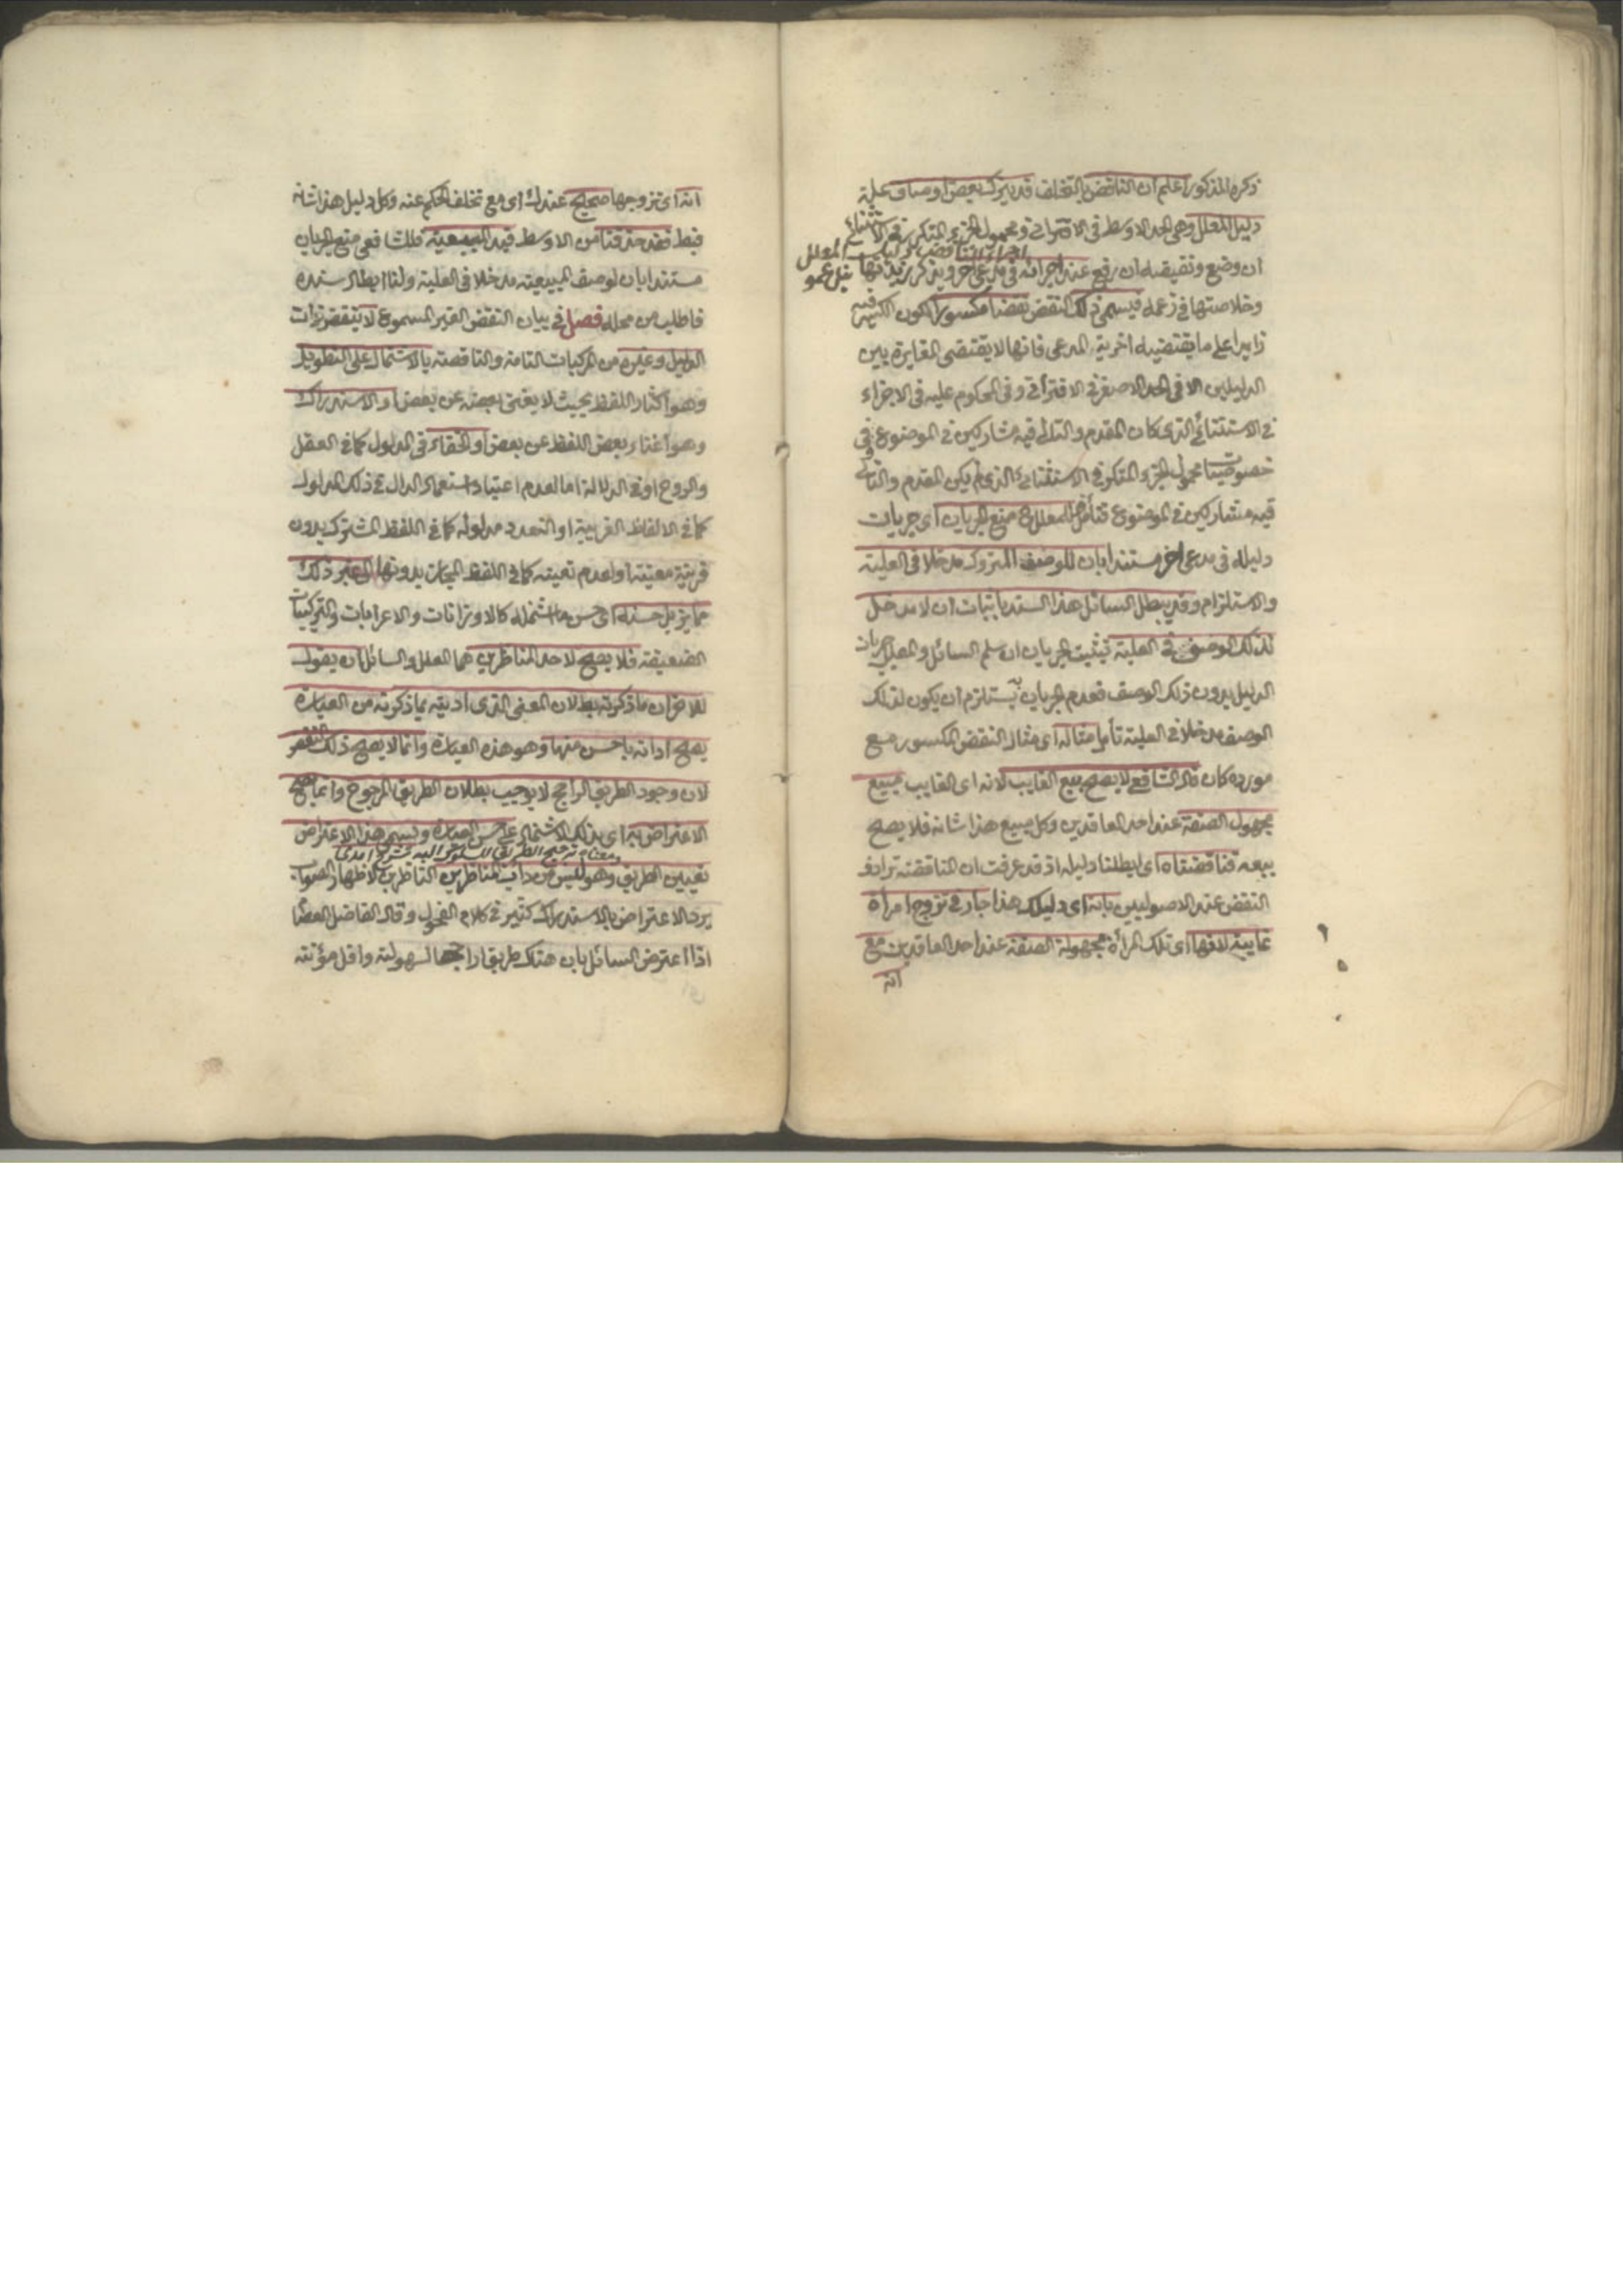 ذكره المذكور اعلم ان الناقض بالتخلف قد يترك بعض اوصاف علية
دليل المعلل وهى الحد الاوسط فى الاقترانى ومحمول الجزء المتكرر فى الاستثنائى
ان وضع ونقيضه ان رفع عند اجرائه فى مدعى آخر ويذكر زبدتها
وخلاصتها فى زعمه فيسمى ذلك النقض نقضا مكسورا لكون الكسر فيه
زايدا على ما يقتضيه اخرية المدعى فانها لا يقتضى المغايرة بين
الدليلين الا فى الحد الاصغر فى الاقترانى وفى المحكوم عليه فى الاجزاء
فى الاستثنائى الذى كان المقدم والتالى فيه مشاركين فى الموضوع وفى
محمول الجزء المتكرر فى الاستثنائى الذى لم يكن المقدم والتالى
فيه متشاركين فى الموضوع فتأمل للمعلل ح منع الجريان اى جريان
دليله فى مدعى اخر مستندا بان للوصف المتروك مدخلا فى العلية
والاستلزام وقد يبطل السائل هذا السند باثبات ان لا مدخل
لذلك الوصف فى العلية فيثبت الجريان ان سلم السائل والمعلل جريان
الدليل بدون ذلك الوصف فعدم الجريان يستلزم ان يكون لذلك
الوصف مدخلا فى العلية تأمل مثاله اى مثال النقض المكسور مع
مورده كان قال الشافعى لا يصح بيع الغايب لانه اى الغايب مبيع
مجهول الصفة عند احد العاقدين وكل مبيع هذا شانه فلا يصح
بيعه فناقضناه اى ابطلنا دليله اذ قد عرفت ان المناقضة ترادف
النقض عند الاصوليين بانه اى دليلك هذا جار فى تزوج امرأة
غايبة لانها اى تلك المرأة مجهولة الصفة عند احد العاقدين مع
انه
انه اى تزوجها صحيح عندك اى مع تخلف الحكم عنه وكل دليل هذا شانه
فبط فقد حذفنا من الاوسط قيد المبيعية فللشافعى منع الجريان
مستندا بان لوصف المبيعية مدخلا فى العلية ولنا ابطال سنده
فاطلب من محله فصل فى بيان النقض الغير المسموع لا ينتقض ذات
الدليل وغيره من المركبات التامة والناقصة بالاشتمال على التطويل
وهو اكثار اللفظ بحيث لا يغنى بعضه عن بعض او الاستدراك
وهو اغناء بعض اللفظ عن بعض او الخفاء فى المدلول كما فى العقل
والروح او فى الدلالة اما لعدم اعتياد استعمال الدال فى ذلك المدلول
كما فى الالفاظ الغريبة او لتعدد مدلوله كما فى اللفظ المشترك بدون
قرينة معينة او لعدم تعينه كما فى اللفظ المجازى بدونها او غير ذلك
مما يزيل حسنه اى حسن ما اشتمله كالاوزانات والاعرابات والتركيبات
الضعيفة فلا يصح لاحد المناظرين هما المعلل والسائل ان يقول
للاخر ان ما ذكرته بط لان المعنى الذى اديته بما ذكرته من العبارة
يصح ادائه باحسن منها وهو هذه العبارة وانما لا يصح ذلك النقض
لان وجود الطريق الراجح لا يوجب بطلان الطريق المرجوح وانما يصح
الاعتراض به اى بذلك الاشتمال على حسن العبارة ويسمى هذا الاعتراض
تعيين الطريق وهو ليس من دأب المناظرين الناظرين لاظهار الصواب
يرد الاعتراض بالاستدراك كثير فى كلام الفحول وقال الفاضل العصام
اذا اعترض السائل بان هناك طريقا راجحا لسهولته واقل مؤنته